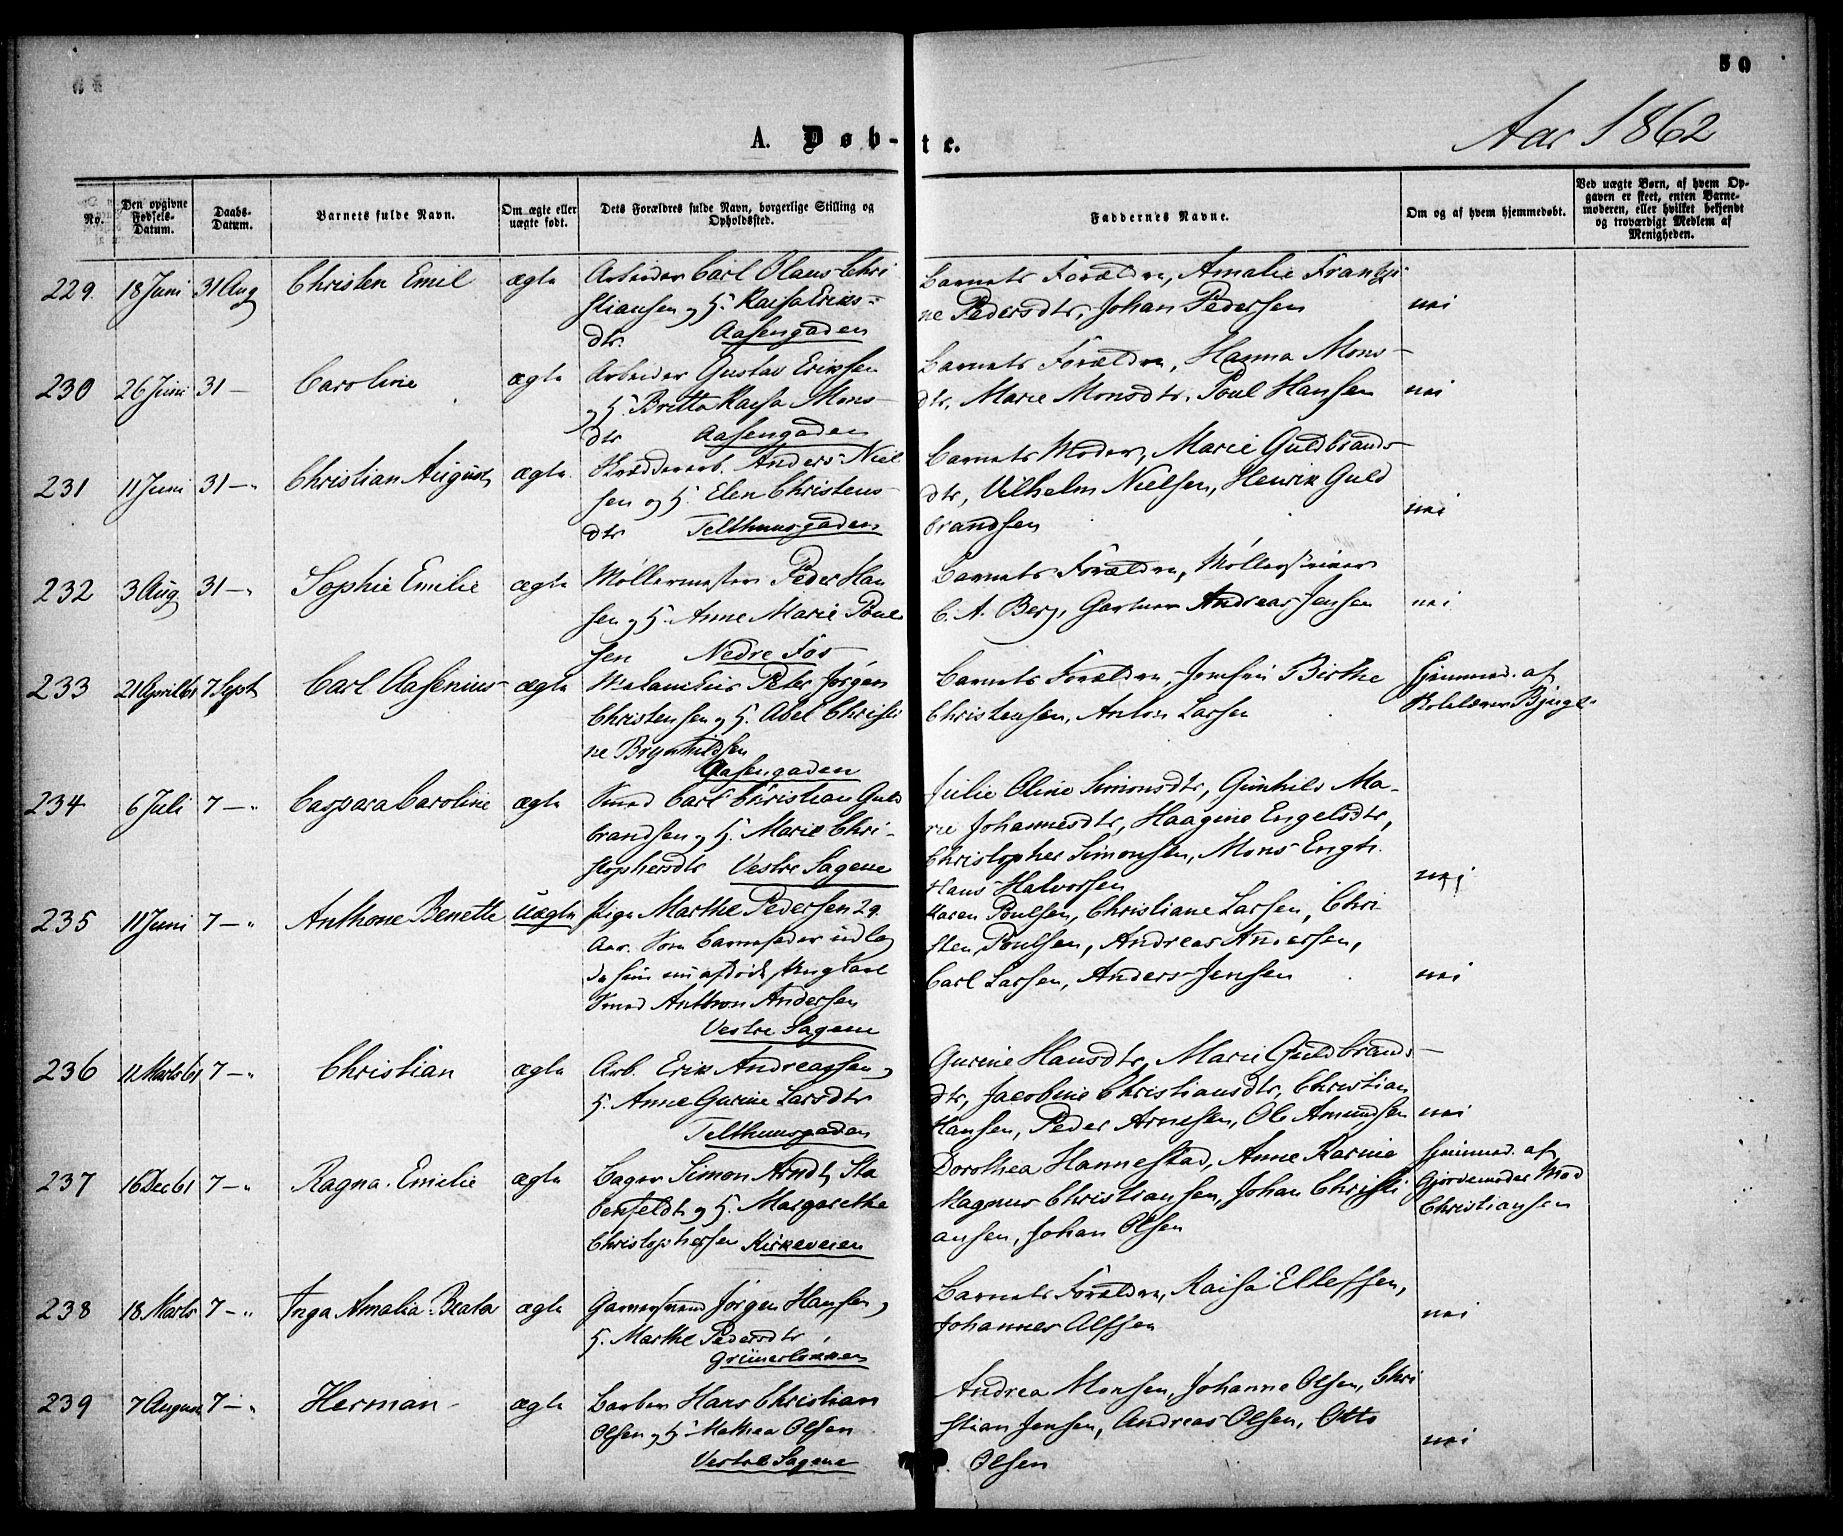 50
Aar 1862
A. Døb-te.
No.
Den opgivne Fødsels-Datum.
Daabs-Datum.
Barnets fulde Navn.
Om ægte eller uægte født.
Dets Forældres fulde Navn, borgerlige Stilling og Opholdssted.
Faddernes Navne.
Om og af hvem hjemmedøbt.
Ved uægte Børn, af hvem Opgaven er skeet, enten Barnemoderen, eller hvilket bekjendt og troværdigt Medlem af Menigheden.
229. 18 Juni 31 Aug Christen Emil ægte
Arbeider Carl Olaus Chri
stiansen og H. Kaisa Eriks-
dtr. Aasengaden
Barnets Forældre, Amalie Frantzi
ne Pedersdtr, Johan Pedersen
nei
230 26 Juni 31 — Caroline ægte
Arbeider Gustav Eriksen
og H. Britta Kaisa Mons-
dtr Aasengaden
Barnets Forældre, Hanna Mons-
dtr, Marie Monsdtr, Poul Hansen
nei
231 11 Juni 31 — " Christian August ægte
Skrædderarb. Anders Niel
sen og H. Elen Christens-
dtr Telthuusgaden
Barnets Moder, Marie Guldbrands-
dtr, Vilhelm Nielsen, Henrik Guld
brandsen
nei
232 3 Aug 31 — " Sophie Emilie ægte
Møllermester Peder Han
sen og H. Anne Marie Poul
sen Nedre Fos
Barnets Forældre,
C. A. Berg, Gartner Andreas Jensen
nei
233 21 April 61 7 Sept Carl Aasenius ægte
Peter Jørgen
Christensen og H. Abel Christi
ne Brynhildsen
Aasengaden
Barnets Forældre, Jomfru Birthe
Christensen, Anton Larsen
Hjemmed. af
234 6 Juli 7 — " Caspara Caroline ægte
Smed Carl Christian Guld
brandsen og H. Marie Chri-
stophersdtr Vestre Sagene
Julie Oline Simonsdtr, Gunhild Ma-
rie Johannesdtr, Haagine Engelsdtr,
Christopher Simonsen, Mons Engh.
Hans Halvorsen
nei
235 11 Juni 7 — " Anthone Benette uægte
Pige Marthe Pedersen 29
Aar. Som Barnefader udlag
de hun nu afdøde Ungkarl
Smed Anthon Andersen
Vestre Sagene
Karen Poulsen, Christiane Larsen, Chri
sten Poulsen, Andreas Andersen,
Carl Larsen, Anders Jensen
nei
236 11 Marts 61 7 — " Christian ægte
Arb. Erik Andreassen og
H. Anne Gurine Larsdtr
Telthuusgaden
Gurine Hansdtr, Marie Guldbrands-
dtr, Jacobine Christiansdtr, Christian
Hansen, Peder Arnesen, Ole Amundsen
nei
237 16 Dec 61 7 — " Ragna Emilie ægte
Bager Simon Arndt Sta
benfeldt og H. Margarethe
Christophersen Kirkeveien
Dorothea Hannestad, Anne Karine
Magnus Christiansen, Johan Christi
ansen, Johan Olsen
Hjemmed. af
Gjordemoder Mad
Christiansen
238 18 Marts 7 — " Inga Amalia Beata ægte
Garversvend Jørgen Hansen og
H. Marthe Pedersdtr
Grünerløkken
Barnets Forældre, Kaisa Ellefsen,
Johannes Olssen
nei
239 7 August 7 — " Herman ægte
Hans Christian
Olsen og H. Mathea Olsen
Vestre Sagene
Andrea Monsen, Johanne Olsen, Chri
stian Jensen, Andreas Olsen, Otto
Olsen
nei